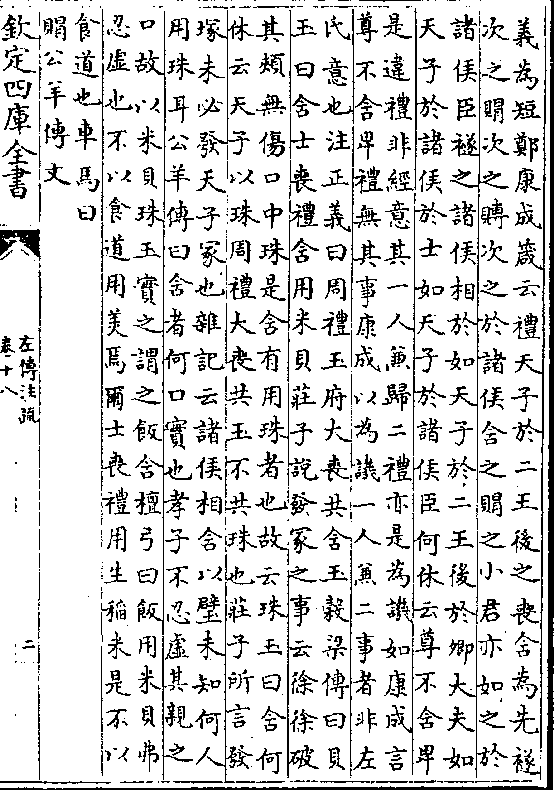 義為短鄭康成箴云禮天子於二王後之喪含為先襚
次之賵次之賻次之於諸侯含之賵之小君亦如之於
諸侯臣襚之諸侯相於如天子於二王後於卿大夫如
天子於諸侯於士如天子於諸侯臣何休云尊不含卑
是違禮非經意其一人兼歸二禮亦是為譏如康成言
尊不含卑禮無其事康成以為譏一人兼二事者非左
氏意也注正義曰周禮玉府大喪共含玉榖梁傳曰貝
玉曰含士喪禮含用米貝莊子說發冢之事云徐徐破
其頰無傷口中珠是含有用珠者也故云珠玉曰含何
休云天子以珠周禮大喪共玉不共珠也莊子所言發
塚未必發天子冢也雜記云諸侯相含以璧未知何人
用珠耳公羊傳曰含者何口實也孝子不忍虛其親之
口故以米貝珠玉實之謂之飯含檀弓曰飯用米貝弗
忍虛也不以食道用美焉爾士喪禮用生稻米是不以
食道也車馬曰
賵公羊傳文
欽定四庫全書
左傳注疏
卷十八
二